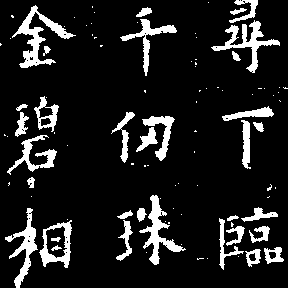 尋下臨
千仞珠
金碧相